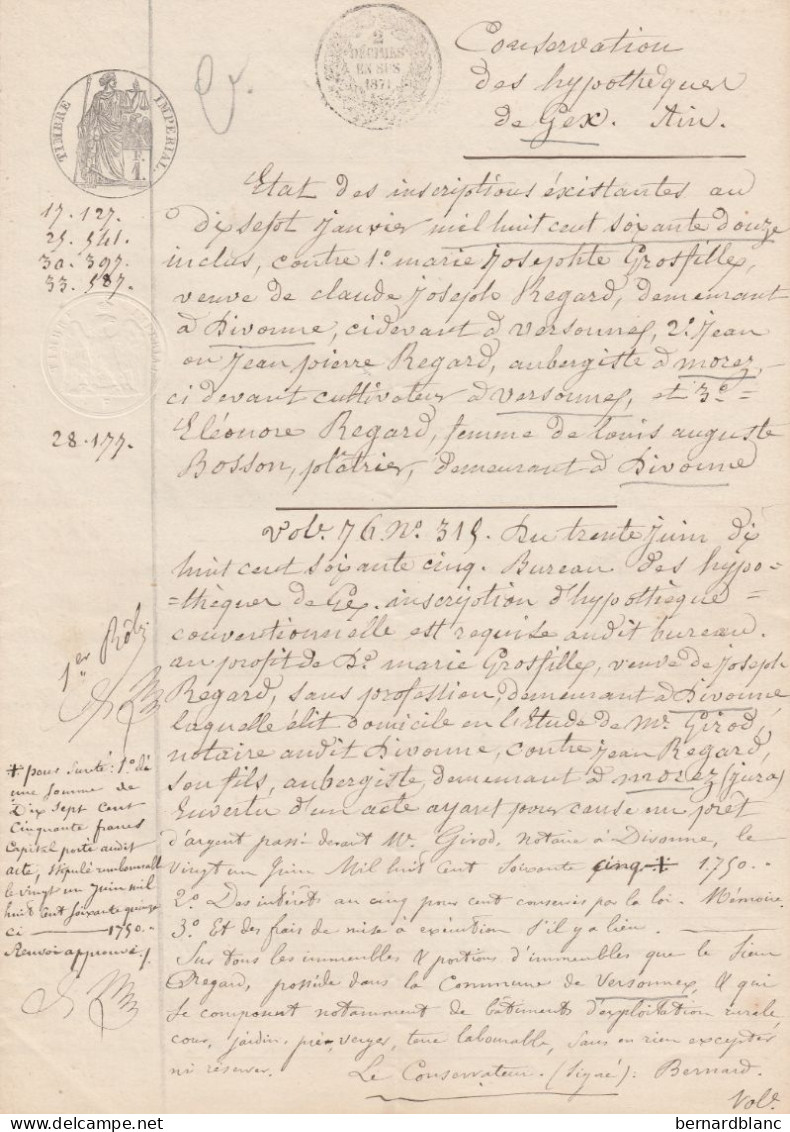 2
DÉCIMES
EN SUS
1871
TIMBRE IMPÉRIAL
F.
1.
Conservation
des hypothèques
de Gex. Ain.
Etat des inscriptions éxistantes au
dix sept Janvier mil huit cent soixante douze
inclus, contre 1º marie Josephte Grosfillex,
veuve de claude Joseph Regard, demeurant
à Divonne, cidevant à Versonnex, 2º Jean
ou Jean pierre Regard, aubergiste à morez,
ci devant cultivateur à Versonnex, et 3º=
Eléonore Regard, femme de louis auguste
Bosson, plâtrier, demeurant à Divonne
17. 127.
25. 541.
30. 397.
33. 587.
28. 177.
Vol. 76. Nº. 315. Du trente Juin dix
huit cent soixante cinq. Bureau des hypo=
=thèques de Gex. inscription d'hypothèque
conventionnelle est requise audit bureau.
au profit de De. marie Grosfillex, veuve de Joseph
Regard, sans profession, demeurant à Divonne
laquelle élit domicile en l'Etude de Me. Girod,
notaire audit Divonne, contre Jean Regard,
son fils, aubergiste, demeurant à morez (jura)
En vertu d'un acte ayant pour cause un prêt
d'argent passé devant Me. Girod, notaire à Divonne, le
vingt un Juin Mil huit Cent Soixante cinq + 1,750.
2º. Des intérêts au cinq pour cent conservés par la loi. Mémoire.
3º. Et des frais de mise à exécution s'il y a lieu.
Sur tous les immeubles & portions d'immeubles que le Sieur
Regard, possède dans la Commune de Versonnex, & qui
se composent notamment de bâtiments d'exploitation rurale
cour, jardin, prés, verger, terre labourable, sans en rien excepter
ni réserver. Le Conservateur. (Signé): Bernard.
Vol.
1er Rôle
+ pour sureté: 1º de
une somme de
Dix sept Cent
Cinquante francs
Capital porté audit
acte, stipulé remboursable
le vingt un Juin mil
huit Cent Soixante quinze
ci 1750.
Renvoi approuvé.
bernardblanc